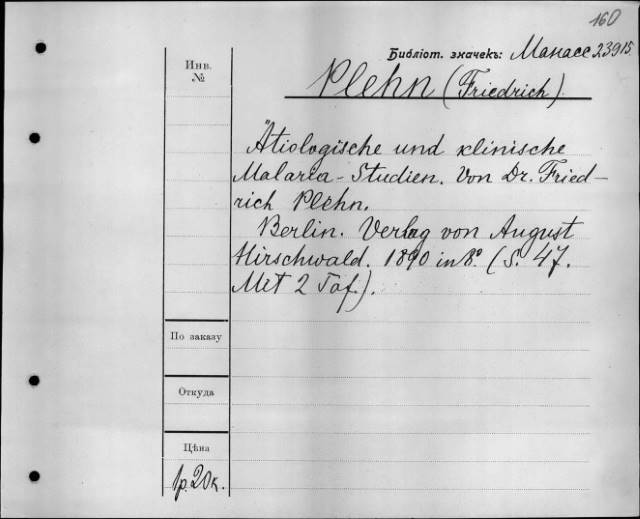 160
Библіот. значекъ: Манасс 23915
Инв.
№
Plehn (Friedrich).
Ätiologische und klinische
Malaria-Studien. Von Dr. Fried-
rich Plehn.
Berlin. Verlag von August
Hirschwald. 1890 in 8.° (S. 47.
Mit 2 Taf.).
По заказу
Откуда
Цѣна
1р. 20к.